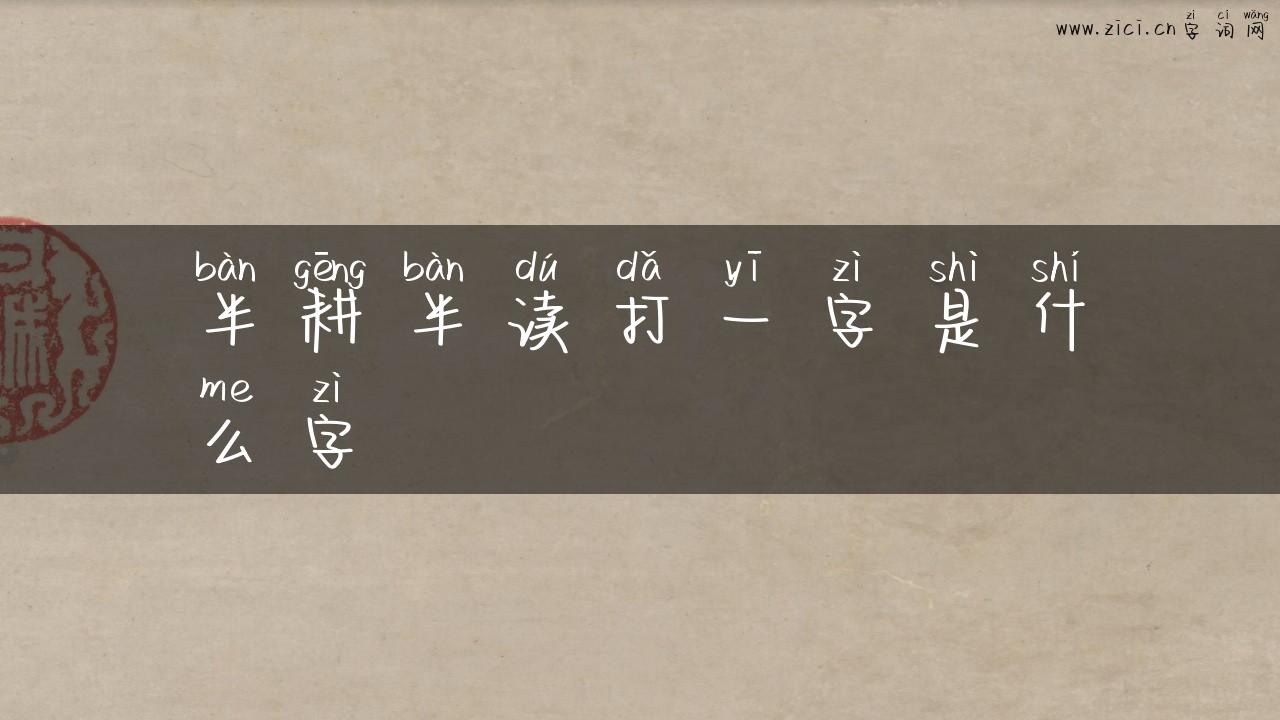 zì cí wǎng
www.zici.cn字词网
bàn gēng bàn dú dǎ yī zì shì shí
半耕半读打一字是什
me zì
么字